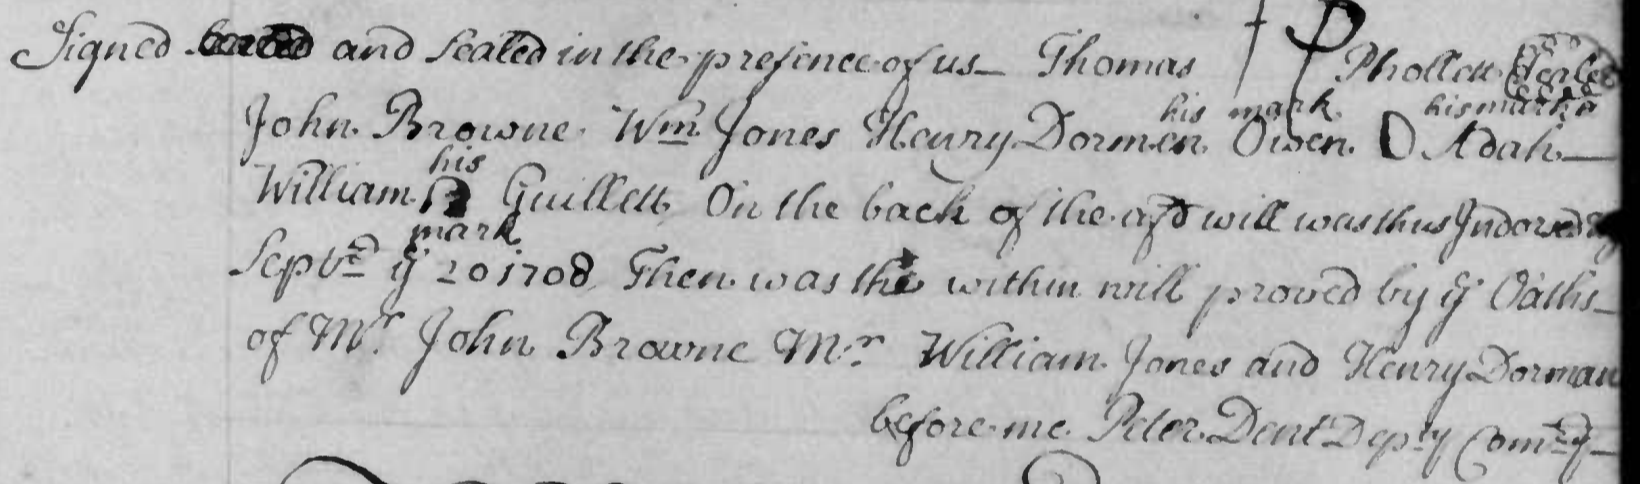 Signed and Sealed in the presence of us Thomas TP Phollett Seale
his mark his mark
John Browne Wm Jones Henry Dormen Owen D Adah
his
William B Guillett On the back of the afd will was thus Indorsed
mark
Septr ye 20 1708 Then was the within will proved by ye Oaths
of Mr John Browne Mr William Jones and Henry Dorman
before me Peter Dent Depty Comry